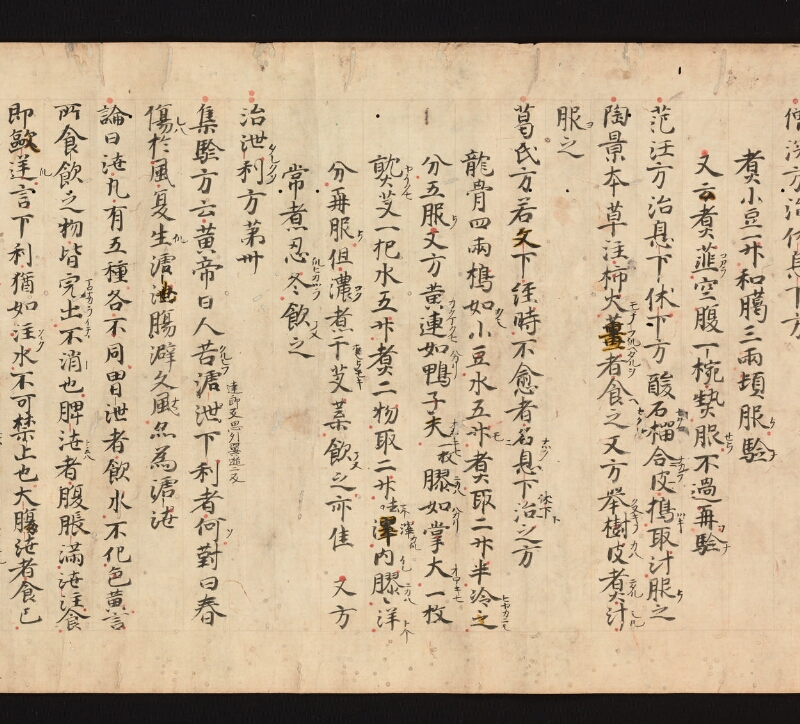 僧深方治休息下方
煮小豆一升和臈三兩頓服驗
又云煮薤空腹一椀熱服不過再驗
范汪方治息下休下方 酸石榴合皮搗取汁服之
陶景本草注柿火薰者食之又方舉樹皮煮汁
服之
葛氏方若久下經時不愈者名息下治之方
龍骨四兩搗如小豆水五升煮取二升半冷之
分五服又方黄連如鴨子大一枚膠如掌大一枚
艾一把水五升煮二物取二升去滓内膠洋
分再服但濃煮干艾葉飲之亦佳 又方
常煮忍冬飲之
治泄利方第卅
集驗方云黄帝曰人苦溏泄下利者何對曰春
傷於風夏生溏泄腸澼久風為溏泄
論曰泄凡有五種各不同胃泄者飲水不化色黄言
所食飲之物皆完出不消也脾泄者腹脹滿泄注食
即歐逆言下利猶如注水不可禁止也大腸泄者食已